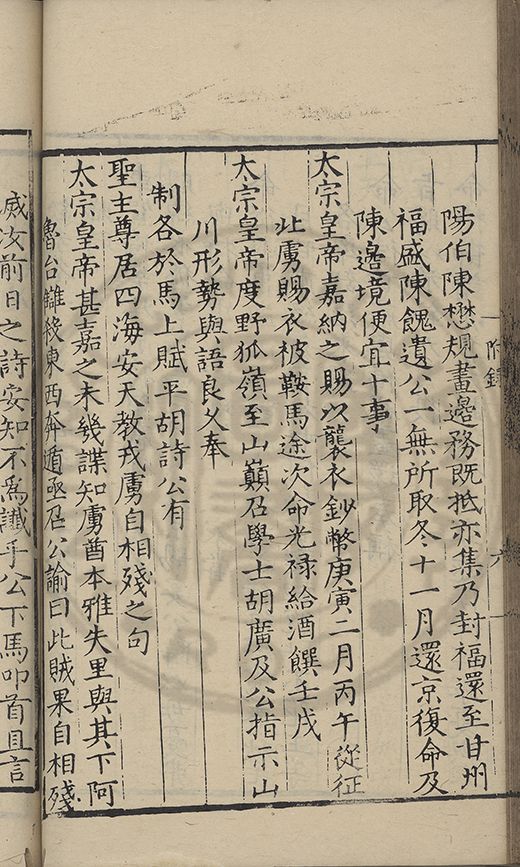 陽伯陳懋規畫邊務既抵亦集乃封福還至甘州
福盛陳餽遺公一無所取冬十一月還京復命及
陳邊境便宜十事
太宗皇帝嘉納之賜以襲衣鈔幣庚寅二月丙午從征
北虜賜衣被鞍馬途次命光禄給酒饌壬戌
太宗皇帝度野狐嶺至山巔召學士胡廣及公指示山
川形勢與語良久奉
制各於馬上賦平胡詩公有
聖主尊居四海安天教戎虜自相殘之句
太宗皇帝甚嘉之未幾諜知虜酋本雅失里與其下阿
魯台讎殺東西奔遁亟召公諭曰此賊果自相殘
附錄
六
威汝前日之詩安知不為讖乎公下馬叩首且言